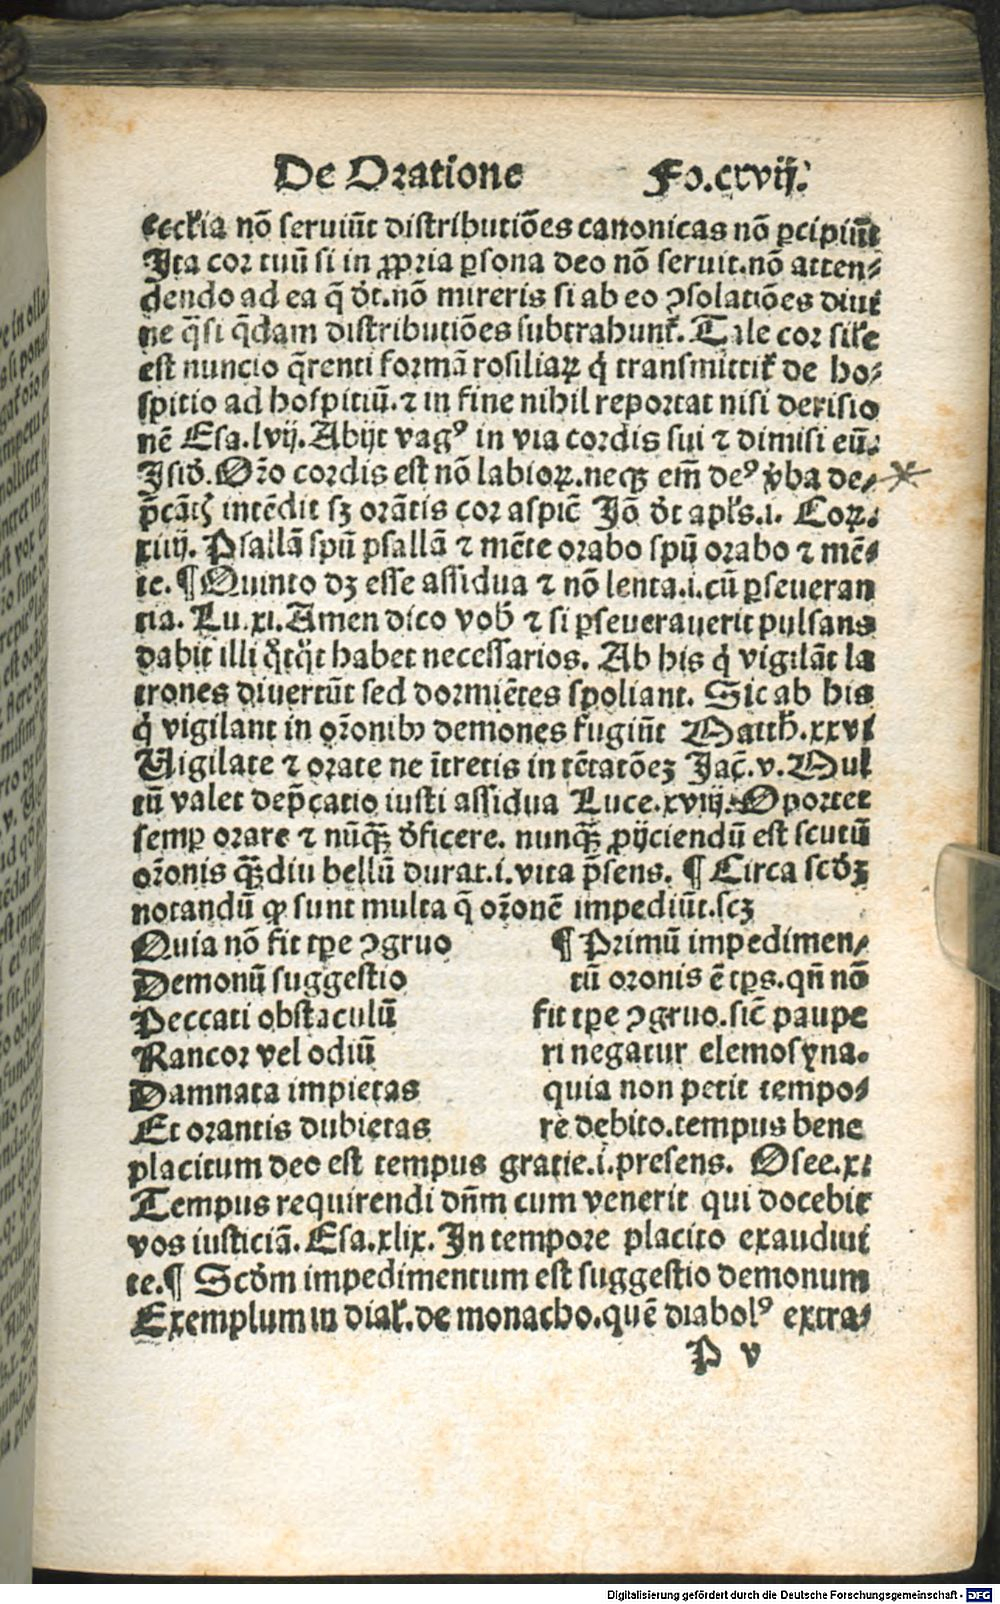 De Oratione Fo.cxvij.
eccĺia nō seruiūt distributiões canonicas nō ꝑcipiūt
Ita cor tuū si in ꝓpria ꝑsona deo nō seruit.nō atten⸗
dendo ad ea q̄ dt̄.nō mireris si ab eo ꝯsolatiões diui
ne q̄si q̄dam distributiões subtrahunt᷑. Tale cor sil̄e
est nuncio q̄renti formā rosiliaꝝ q̇ transmittit᷑ de ho⸗
spitio ad hospitiū.⁊ in fine nihil reportat nisi derisio
nē Esa.lvij.Abijt vagꝰ in via cordis sui ⁊ dimisi eū.
Isid̄. Or̄o cordis est nō labioꝝ.neqꝫ em̄ deꝰ v̄ba de⸗
p̄cāt᷑ intēdit sꝫ orātis cor aspic̄ Jō dt̄ apl̄s.i. Coꝝ.
xiiij. Psallā spū psallā ⁊ mēte orabo spū orabo ⁊ mē⸗
te. ¶ Quinto dꝫ esse assidua ⁊ nō lenta.i.cū ꝑseueran
tia. Lu.xi.Amen dico vob̄ ⁊ si ꝑseuerauerit pulsans
dabit illi q̇tq̇t habet necessarios. Ab his q̇ vigilāt la
trones diuertūt sed dormiētes spoliant. Sic ab his
q̇ vigilant in or̄onibꝫ demones fugiūt Matth̄.xxvi
Uigilate ⁊ orate ne ītretis in tētatōeꝫ Jac̄.v.Mul
tū valet dep̄catio iusti assidua Luce.xviij.Oportet
semꝑ orare ⁊ nūqꝫ̄ d̄ficere. nunqꝫ̄ ꝓijciendū est scutū
or̄onis qꝫ̄diu bellū durat.i.vita p̄sens. ¶ Circa scd̄ꝫ
notandū ꝙ sunt multa q̄ or̄onē impediūt.scꝫ
Quia nō fit tꝑe ꝯgruo
Demonū suggestio
Peccati obstaculū
Rancor vel odiū
Damnata impietas
Et orantis dubietas
¶ Primū impedimen⸗
tū oronis ē tꝑs.qn̄ nō
fit tꝑe ꝯgruo.sic̄ paupe
ri negatur elemosyna.
quia non petit tempo⸗
re debito.tempus bene
placitum deo est tempus gratie.i.presens. Osee.x.
Tempus requirendi dn̄m cum venerit qui docebit
vos iusticiā.Esa.xlix.In tempore placito exaudiui
te.¶ Scd̄m impedimentum est suggestio demonum
Exemplum in dial̄.de monacho.quē diabolꝰ extra⸗
P v
Digitalisierung gefördert durch die Deutsche Forschungsgemeinschaft - DFG